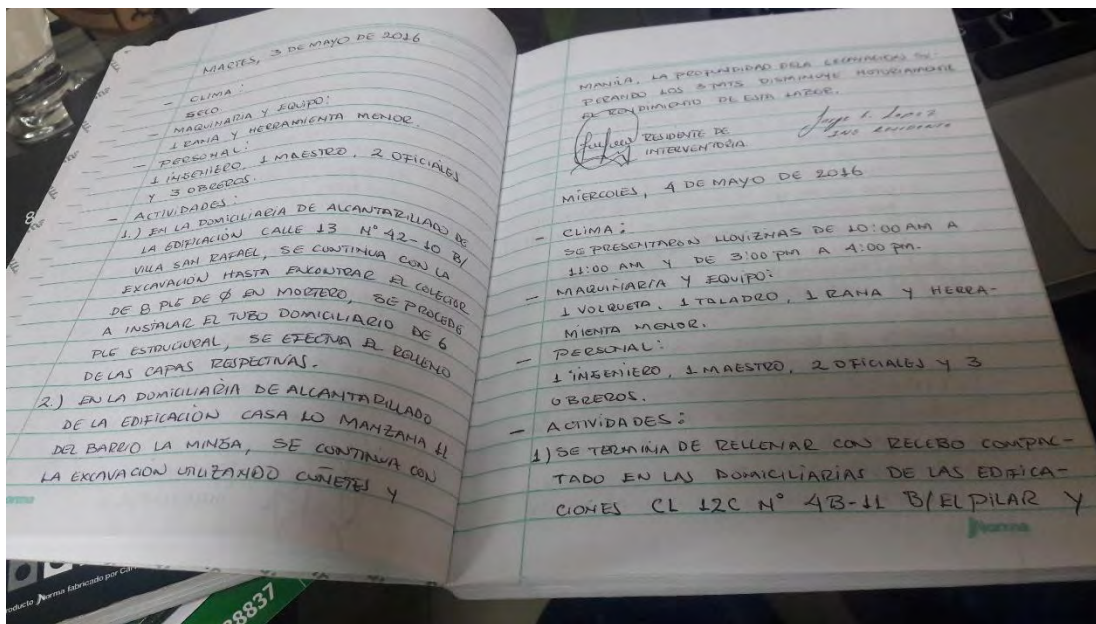 MARTES, 3 DE MAYO DE 2016
- CLIMA:
SECO
- MAQUINARIA Y EQUIPO:
1 RANA Y HERRAMIENTA MENOR.
- PERSONAL:
1 INGENIERO, 1 MAESTRO, 2 OFICIALES
Y 3 OBREROS.
- ACTIVIDADES:
1.) EN LA DOMICILIARIA DE ALCANTARILLADO DE
LA EDIFICACIÓN CALLE 13 N° 42-10 B/
VILLA SAN RAFAEL, SE CONTINUA CON LA
EXCAVACIÓN HASTA ENCONTRAR EL COLECTOR
DE 8 PLG DE Ø EN MORTERO, SE PROCEDE
A INSTALAR EL TUBO DOMICILIARIO DE 6
PLG ESTRUCTURAL, SE EFECTUA EL RELLENO
DE LAS CAPAS RESPECTIVAS.
2.) EN LA DOMICILIARIA DE ALCANTARILLADO
DE LA EDIFICACIÓN CASA 10 MANZANA 11
DEL BARRIO LA MINGA, SE CONTINUA CON
LA EXCAVACIÓN UTILIZANDO CUÑETES Y
MANILA. LA PROFUNDIDAD DE LA EXCAVACIÓN SU-
PERANDO LOS 3 MTS DISMINUYE NOTORIAMENTE
EL RENDIMIENTO DE ESTA LABOR.
RESIDENTE DE
INTERVENTORIA
Jorge L. Lopez
ING RESIDENTE
MIERCOLES, 4 DE MAYO DE 2016
- CLIMA:
SE PRESENTARON LLOVIZNAS DE 10:00 AM A
11:00 AM Y DE 3:00 PM A 4:00 PM.
- MAQUINARIA Y EQUIPO:
1 VOLQUETA, 1 TALADRO, 1 RANA Y HERRA-
MIENTA MENOR.
- PERSONAL:
1 INGENIERO, 1 MAESTRO, 2 OFICIALES Y 3
OBREROS.
- ACTIVIDADES:
1) SE TERMINA DE RELLENAR CON RECEBO COMPAC-
TADO EN LAS DOMICILIARIAS DE LAS EDIFICA-
CIONES CL 12C N° 4B-11 B/EL PILAR Y
Norma
Norma fabricado por
38837